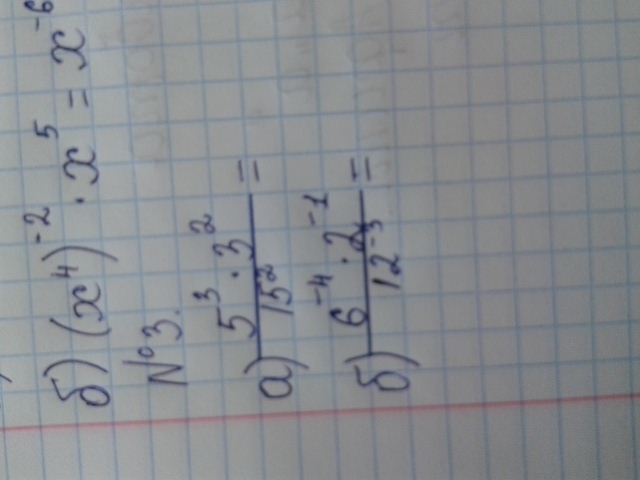 б) (x⁴)⁻² · x⁵ = x⁻⁶
№3.
а) 5³ · 3² / 15² =
б) 6⁻⁴ · 2⁻¹ / 12⁻³ =